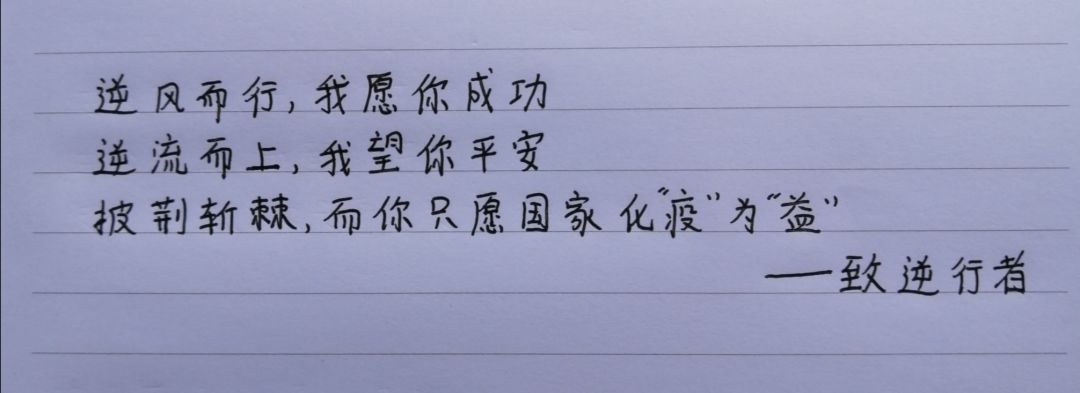 逆风而行,我愿你成功
逆流而上,我望你平安
披荆斩棘,而你只愿国家化“疫”为“益”
——致逆行者